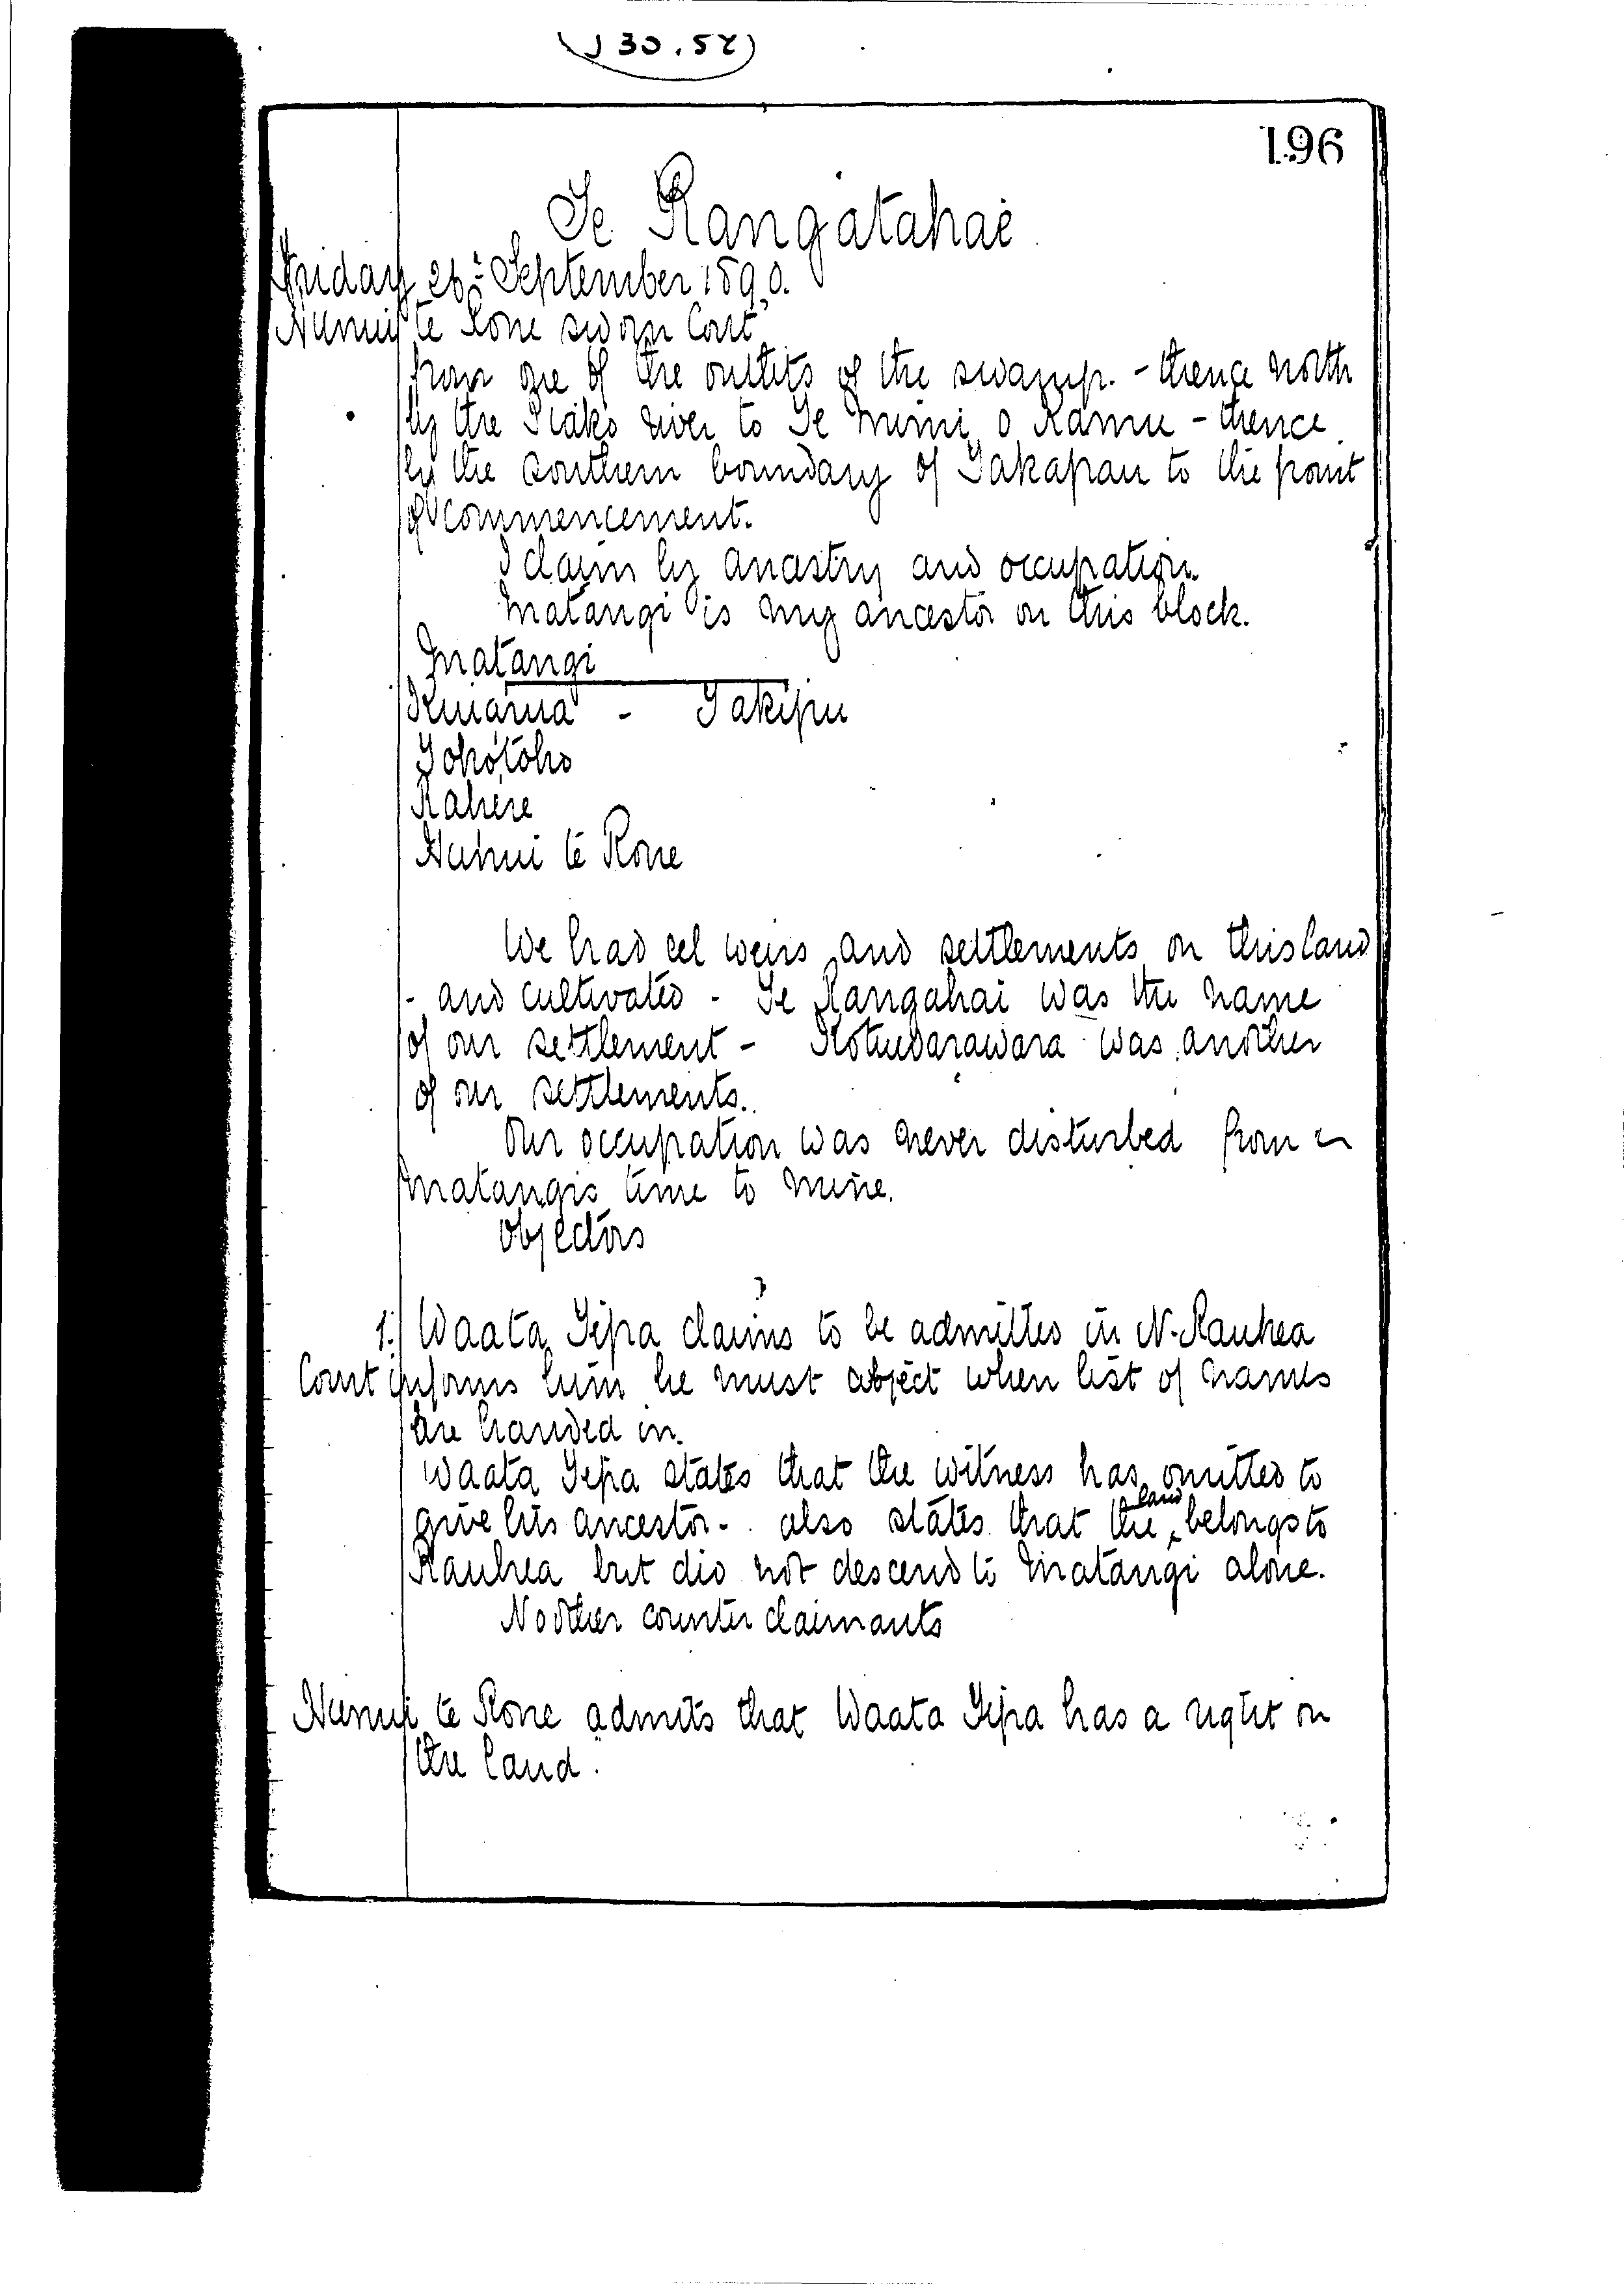 (J 30.52)
196
Te Rangatahae
Friday 26: September 1890.
Nunui te Rone sworn Cont
from one of the outlets of the swamp. - thence north
by the Piako river to Te Mimi o Ramu - thence
by the southern boundary of Takapau to the point
of commencement.
I claim by ancestry and occupation.
Matangi is my ancestor on this block.
Matangi
- Takipu
Tohotoho
Rahere
Nunui te Rone
We had eel weirs and settlements on this land
- and cultivated - Te Rangahai was the name
of our settlement - Kotuwarawara was another
of our settlements.
Our occupation was never disturbed from
Matangis time to mine.
Objectors
1. Waata Tipa claims to be admitted in N. Rauhea
Court informs him he must object when list of names
are handed in.
Waata Tipa states that the witness has omitted to
give his ancestor - also states that the land belongs to
Rauhea but did not descend to Matangi alone.
No other counter claimants
Nunui te Rone admits that Waata Tipa has a right on
the land.